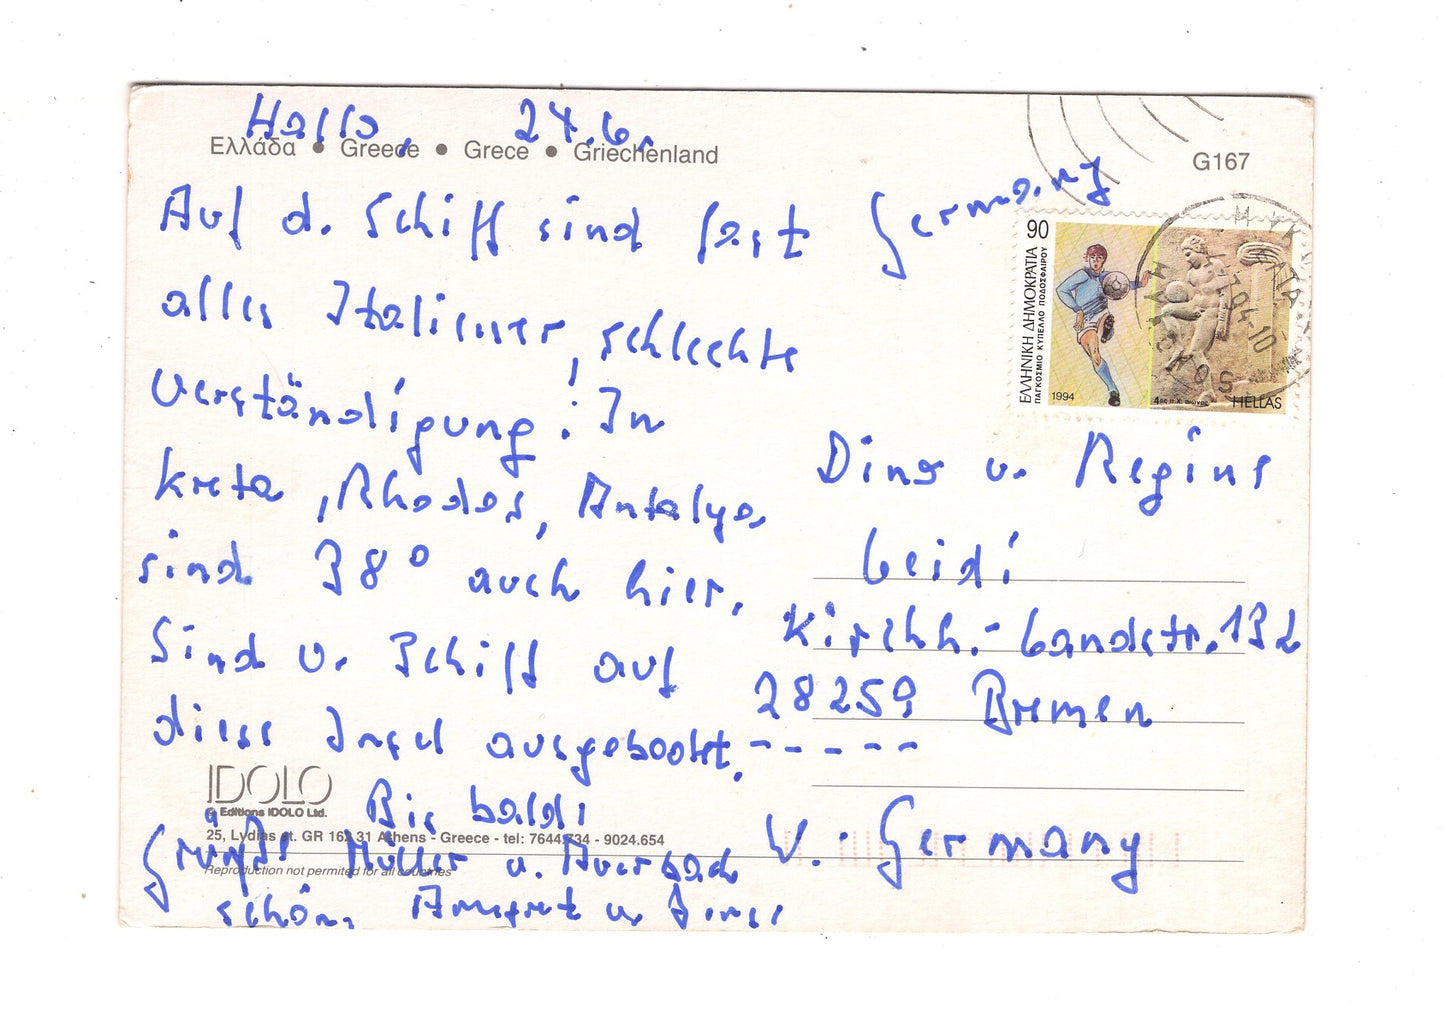 Hallo, 24.6.
Ελλάδα • Greece • Grece • Griechenland
G167
Auf d. Schiff sind fast
alles Italiener, schlechte
Verständigung! In
Kreta, Rhodos, Antalya,
sind 38° auch hier.
Sind v. Schiff auf
diese Insel ausgebootet.
Bis bald!
Grüßt Müller u. Auerbach
schön, Annegret u.
IDOLO
© Editions IDOLO Ltd.
25, Lydias st. GR 31 Athens - Greece - tel: - 9024.654
Reproduction not permited for all countries
Germany
90
ΕΛΛΗΝΙΚΗ ΔΗΜΟΚΡΑΤΙΑ
ΠΑΓΚΟΣΜΙΟ ΚΥΠΕΛΛΟ ΠΟΔΟΣΦΑΙΡΟΥ
1994
4ος π.Χ. αιώνας
HELLAS
MYKONOS
Dina u. Regina
Leidi
Kirchh.-Landstr. 132
28259 Bremen
W.-Germany